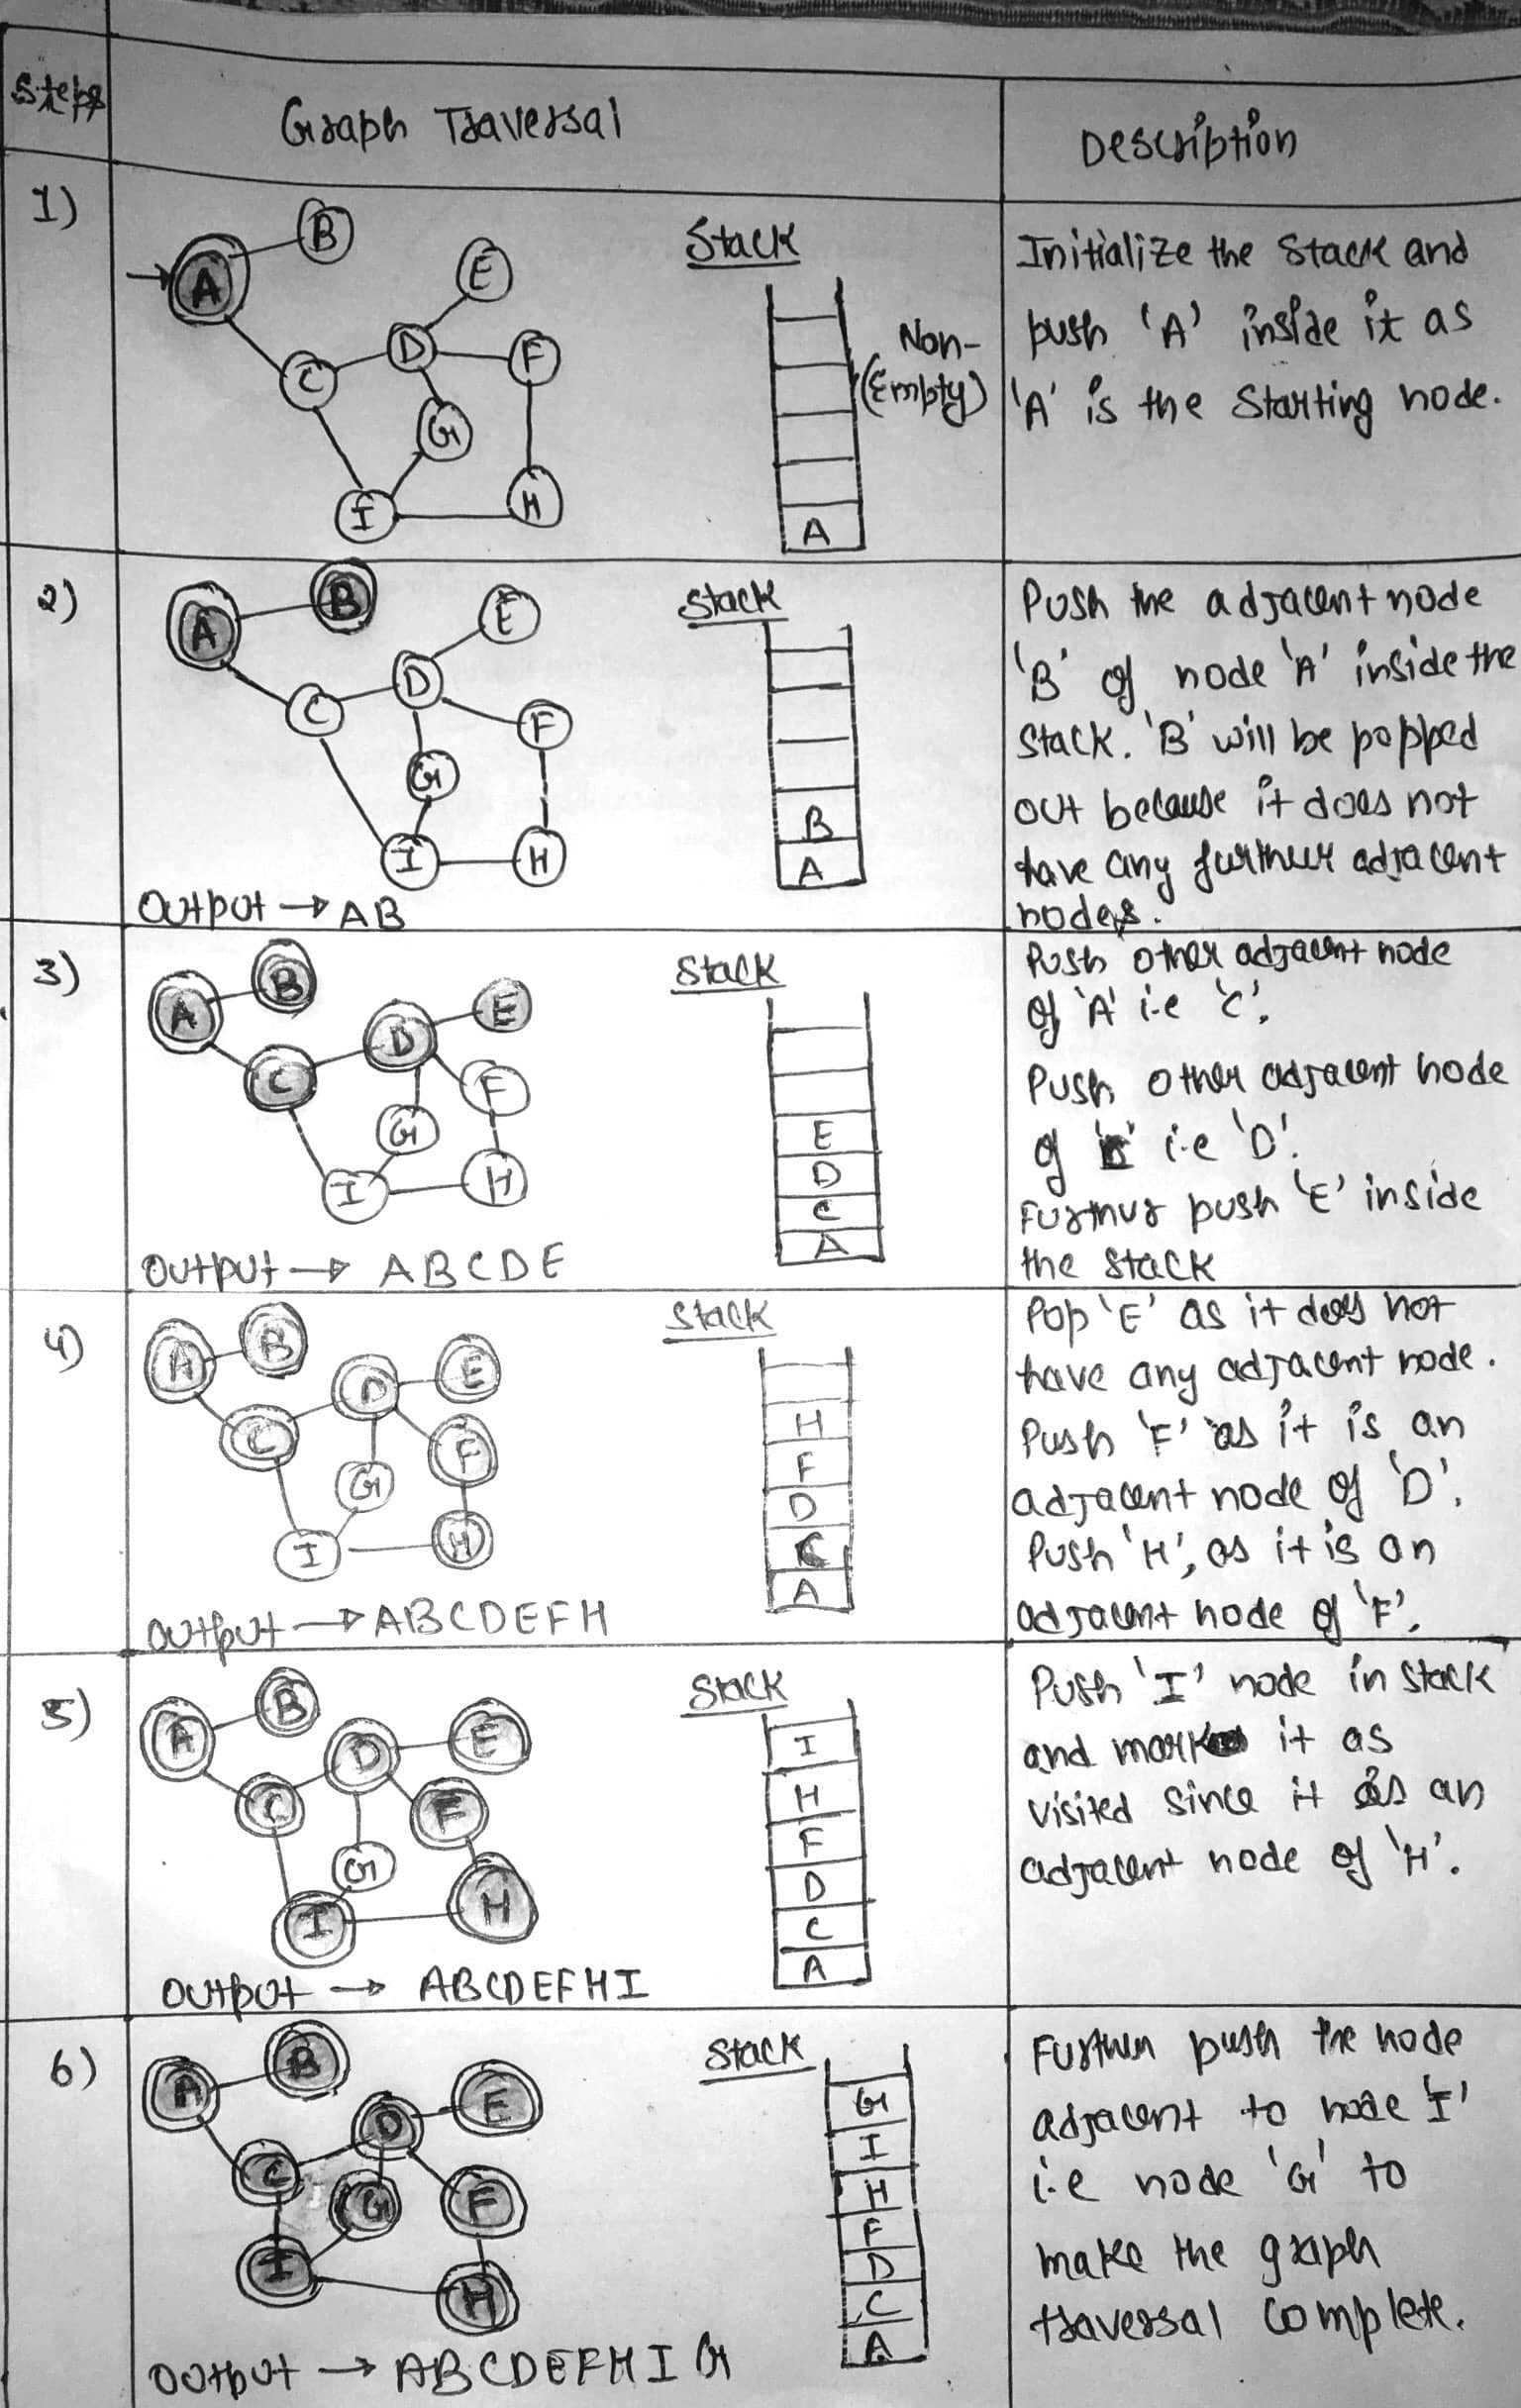 Steps
Graph Traversal
Description
1)
A
B
C
D
E
F
G
H
I
Stack
Non-
(Empty)
A
Initialize the Stack and
push 'A' inside it as
'A' is the Starting node.
2)
A
B
C
D
E
F
G
H
I
Output → AB
Stack
B
A
Push the adjacent node
'B' of node 'A' inside the
Stack. 'B' will be popped
out because it does not
have any further adjacent
nodes.
3)
A
B
C
D
E
F
G
H
I
Output → ABCDE
Stack
E
D
C
A
Push other adjacent node
of 'A' i.e 'C'.
Push other adjacent node
of i.e 'D'.
Further push 'E' inside
the stack
4)
A
B
C
D
E
F
G
H
I
Output → ABCDEFH
Stack
H
F
D
C
A
Pop 'E' as it does not
have any adjacent node.
Push 'F' as it is an
adjacent node of 'D'.
Push 'H', as it is an
adjacent node of 'F'.
5)
A
B
C
D
E
F
G
H
I
Output → ABCDEFHI
Stack
I
H
F
D
C
A
Push 'I' node in Stack
and mark it as
visited since it is an
adjacent node of 'H'.
6)
A
B
C
D
E
F
G
H
I
Output → ABCDEFHIG
Stack
G
I
H
F
D
C
A
Further push the node
adjacent to node 'I'
i.e node 'G' to
make the graph
traversal complete.